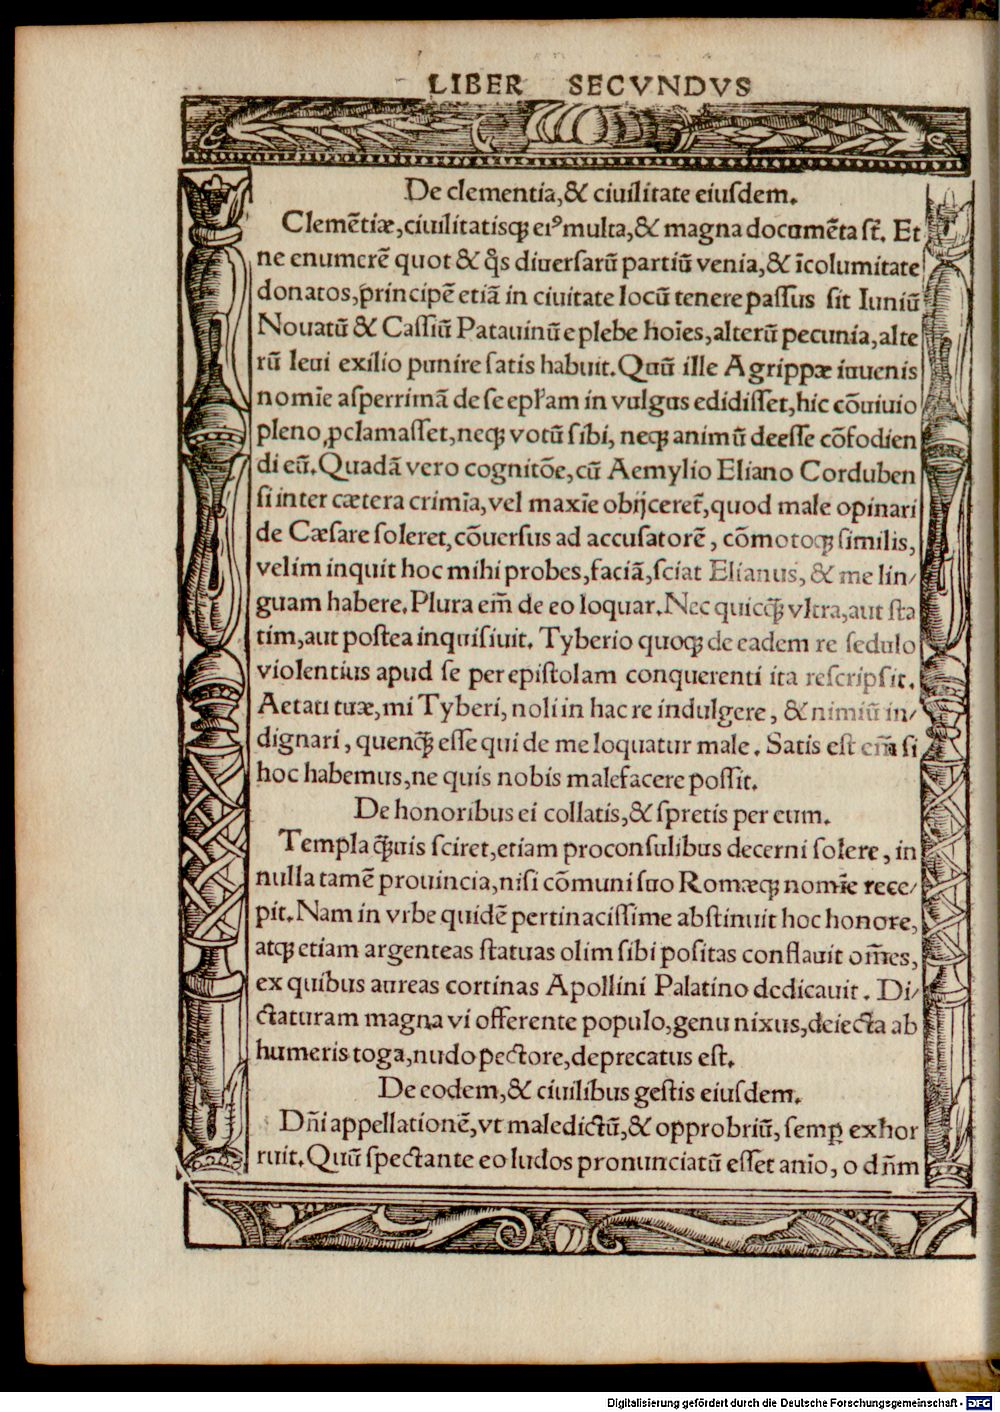 LIBER SECVNDVS
De clementia,& ciuilitate eiusdem.
Clemētiæ,ciuilitatisqꝫ ei⁹ multa,& magna documēta st̄. Et
ne enumerē quot & q̊s diuersarū partiū venia,& īcolumitate
donatos,prīncipē etiā in ciuitate locū tenere passus sit Iuniū
Nouatū & Cassiū Patauinū e plebe hoīes,alterū pecunia,alte
rū leui exilio punire satis habuit.Quū ille Agrippæ iuuenis
nomīe asperrimā de se epłam in vulgus edidisset,hic cōuiuio
pleno ꝓclamasset,neqꝫ votū sibi, neqꝫ animū deesse cōfodien
di eū.Quadā vero cognitōe,cū Aemylio Eliano Corduben
si inter cætera crimīa,vel maxīe obijceret̄,quod male opinari
de Cæsare soleret,cōuersus ad accusatorē, cōmotoqꝫ similis,
velim inquit hoc mihi probes,faciā,sciat Elianus, & me lin/
guam habere.Plura em̄ de eo loquar.Nec quicq̄ꝫ vltra,aut sta
tim,aut postea inquisiuit. Tyberio quoqꝫ de eadem re sedulo
violentius apud se per epistolam conquerenti ita rescripsit.
Aetati tuæ,mi Tyberi, noli in hac re indulgere, & nimiū in/
dignari, quenq̄ꝫ esse qui de me loquatur male. Satis est em̄ si
hoc habemus,ne quis nobis malefacere possit.
De honoribus ei collatis,& spretis per eum.
Templa q̄ꝫuis sciret,etiam proconsulibus decerni solere, in
nulla tamē prouincia,nisi cōmuni suo Romæqꝫ nomīe rece/
pit.Nam in vrbe quidē pertinacissime abstinuit hoc honore,
atqꝫ etiam argenteas statuas olim sibi positas conflauit om̄es,
ex quibus aureas cortinas Apollini Palatino dedicauit. Di/
ctaturam magna vi offerente populo,genu nixus,deiecta ab
humeris toga,nudo pectore,deprecatus est.
De eodem,& ciuilibus gestis eiusdem.
Dn̄i appellationē,vt maledictū,& opprobriū, semꝑ exhor
ruit.Quū spectante eo ludos pronunciatū esset anīo, o dn̄m
Digitalisierung gefördert durch die Deutsche Forschungsgemeinschaft - DFG